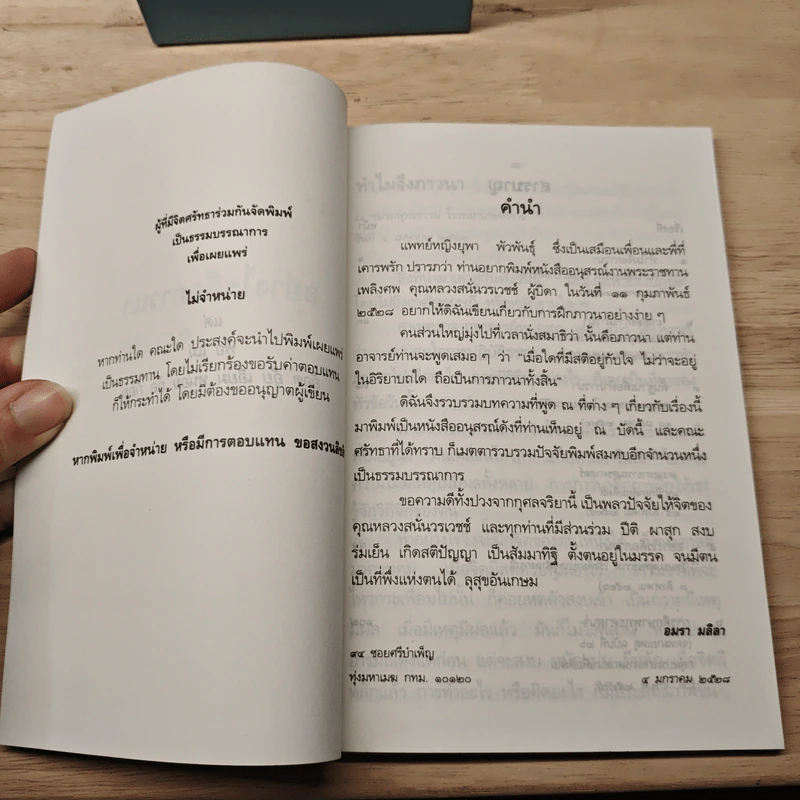 ผู้ที่มีจิตศรัทธาร่วมกันจัดพิมพ์
เป็นธรรมบรรณาการ
เพื่อเผยแพร่
ไม่จำหน่าย
หากท่านใด คณะใด ประสงค์จะนำไปพิมพ์เผยแพร่
เป็นธรรมทาน โดยไม่เรียกร้องขอรับค่าตอบแทน
ก็ให้กระทำได้ โดยมิต้องขออนุญาตผู้เขียน
หากพิมพ์เพื่อจำหน่าย หรือมีการตอบแทน ขอสงวนลิขสิ
คำนำ
แพทย์หญิงยุพา พัวพันธุ์ ซึ่งเป็นเสมือนเพื่อนและพี่ที่
เคารพรัก ปรารภว่า ท่านอยากพิมพ์หนังสืออนุสรณ์งานพระราชทาน
เพลิงศพ คุณหลวงสนั่นวรเวชช์ ผู้บิดา ในวันที่ ๑๑ กุมภาพันธ์
๒๕๒๘ อยากให้ดิฉันเขียนเกี่ยวกับการฝึกภาวนาอย่างง่าย ๆ
คนส่วนใหญ่มุ่งไปที่เวลานั่งสมาธิว่า นั้นคือภาวนา แต่ท่าน
อาจารย์ท่านจะพูดเสมอ ๆ ว่า “เมื่อใดที่มีสติอยู่กับใจ ไม่ว่าจะอยู่
ในอิริยาบถใด ถือเป็นการภาวนาทั้งสิ้น”
ดิฉันจึงรวบรวมบทความที่พูด ณ ที่ต่าง ๆ เกี่ยวกับเรื่องนี้
มาพิมพ์เป็นหนังสืออนุสรณ์ดังที่ท่านเห็นอยู่ ณ บัดนี้ และคณะ
ศรัทธาที่ได้ทราบ ก็เมตตารวบรวมปัจจัยพิมพ์สมทบอีกจำนวนหนึ่ง
เป็นธรรมบรรณาการ
ขอความดีทั้งปวงจากกุศลจริยานี้ เป็นพลวปัจจัยให้จิตของ
คุณหลวงสนั่นวรเวชช์ และทุกท่านที่มีส่วนร่วม ปีติ ผาสุก สงบ
ร่มเย็น เกิดสติปัญญา เป็นสัมมาทิฐิ ตั้งตนอยู่ในมรรค จนมีตน
เป็นที่พึ่งแห่งตนได้ ลุสุขอันเกษม
อมรา มลิลา
๙๔ ซอยศรีบำเพ็ญ
ทุ่งมหาเมฆ กทม. ๑๐๑๒๐
๔ มกราคม ๒๕๒๘